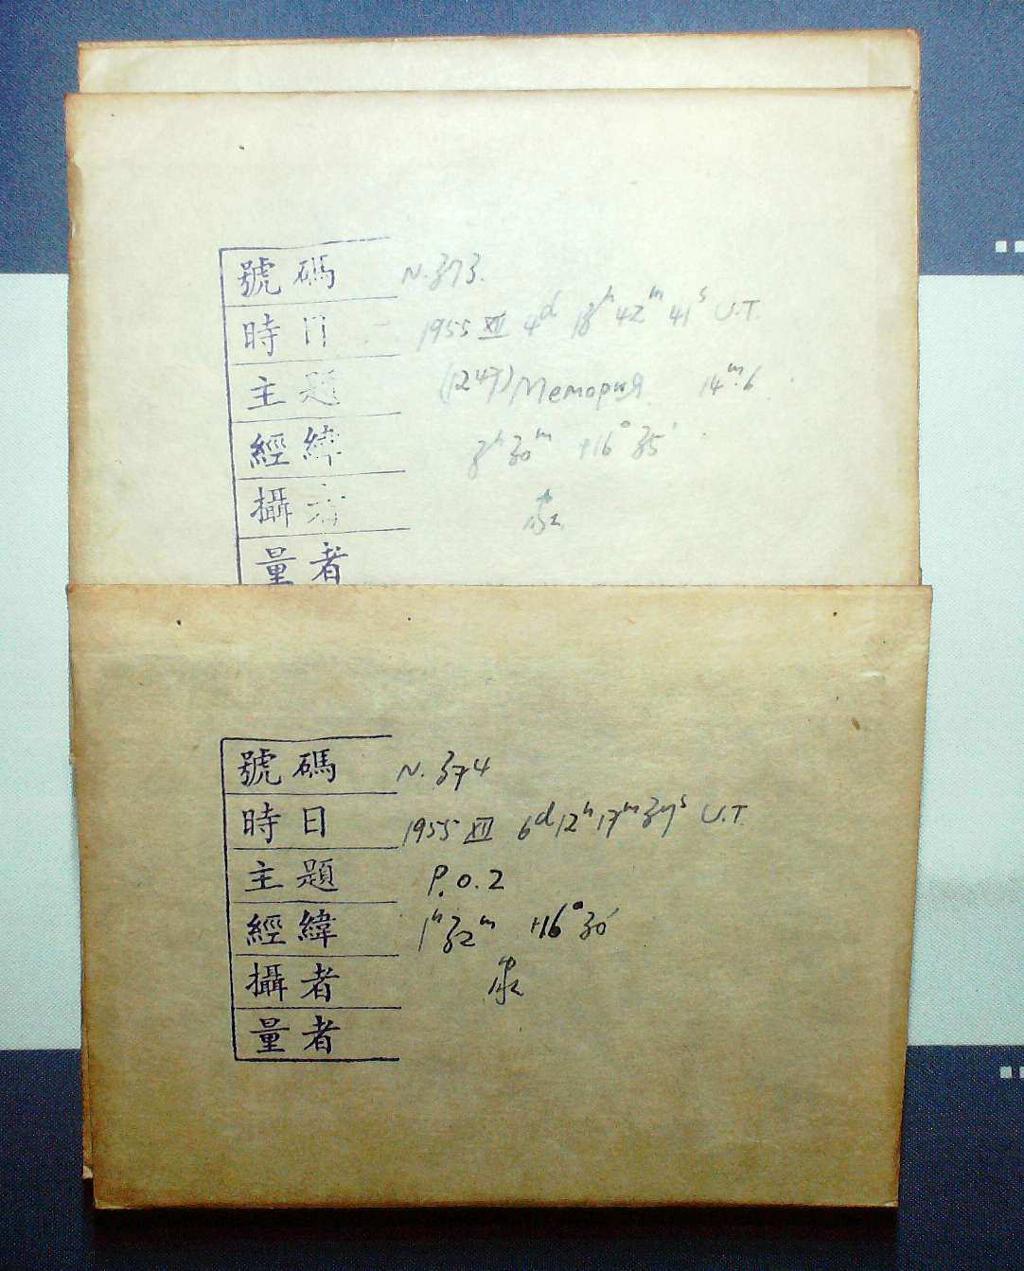 號碼 N. 373.
時日 1955 XII 4ᵈ 18ʰ 42ᵐ 41ˢ U.T.
主題 (1247) Мемория 14ᵐ.6
經緯 3ʰ 30ᵐ +16° 35′
攝者
量者
號碼 N. 374
時日 1955 XII 6ᵈ 12ʰ 17ᵐ 37ˢ U.T.
主題 P.O.2
經緯 1ʰ 32ᵐ +16° 30′
攝者
量者